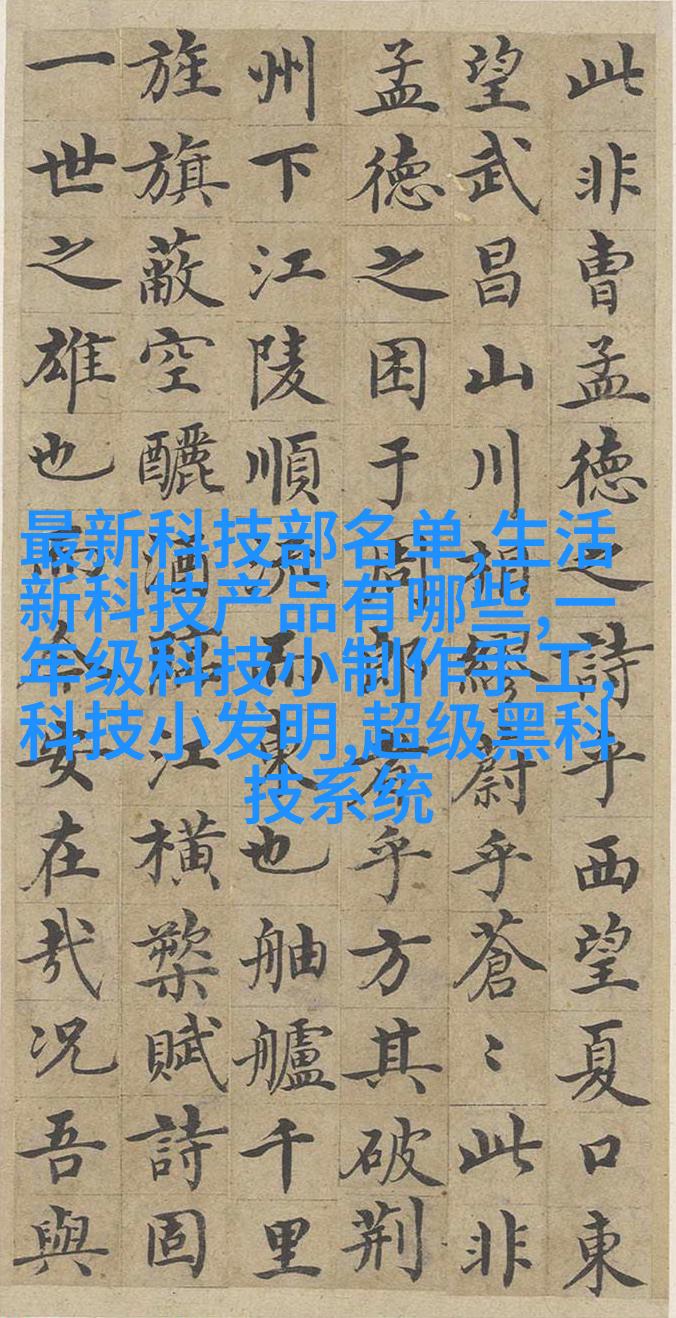 此非曹孟德之詩乎西望夏口東
望武昌山川相繆蔚乎蒼〻此非
孟德之困于周郎者乎方其破荊
州下江陵順流而東也舳艫千里
旌旗蔽空釃酒臨江橫槊賦詩固
一世之雄也而今安在哉況吾與
最新科技部名单,生活
新科技产品有哪些,一
年级科技小制作手工,
科技小发明,超级黑科
技系统